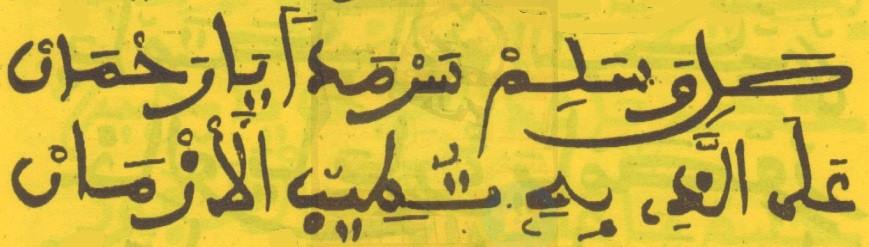 صَلِ وَسَلِمْ سَرْمَداً يَا رَحْمَانْ
عَلَى الَّذِي بِهِ تَطِيبُ الْأَزْمَانْ